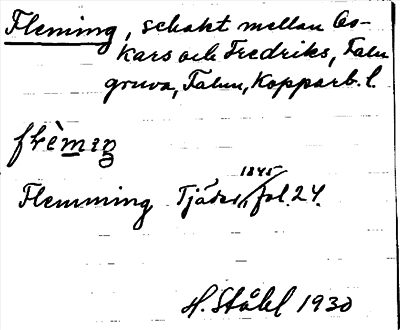 Fleming, schakt mellan Os-
kars och Fredriks, Falu
gruva, Falun, Kopparb. l.
flèmiŋ
1845
Flemming Tjäder, fol. 24.
H. Ståhl 1930